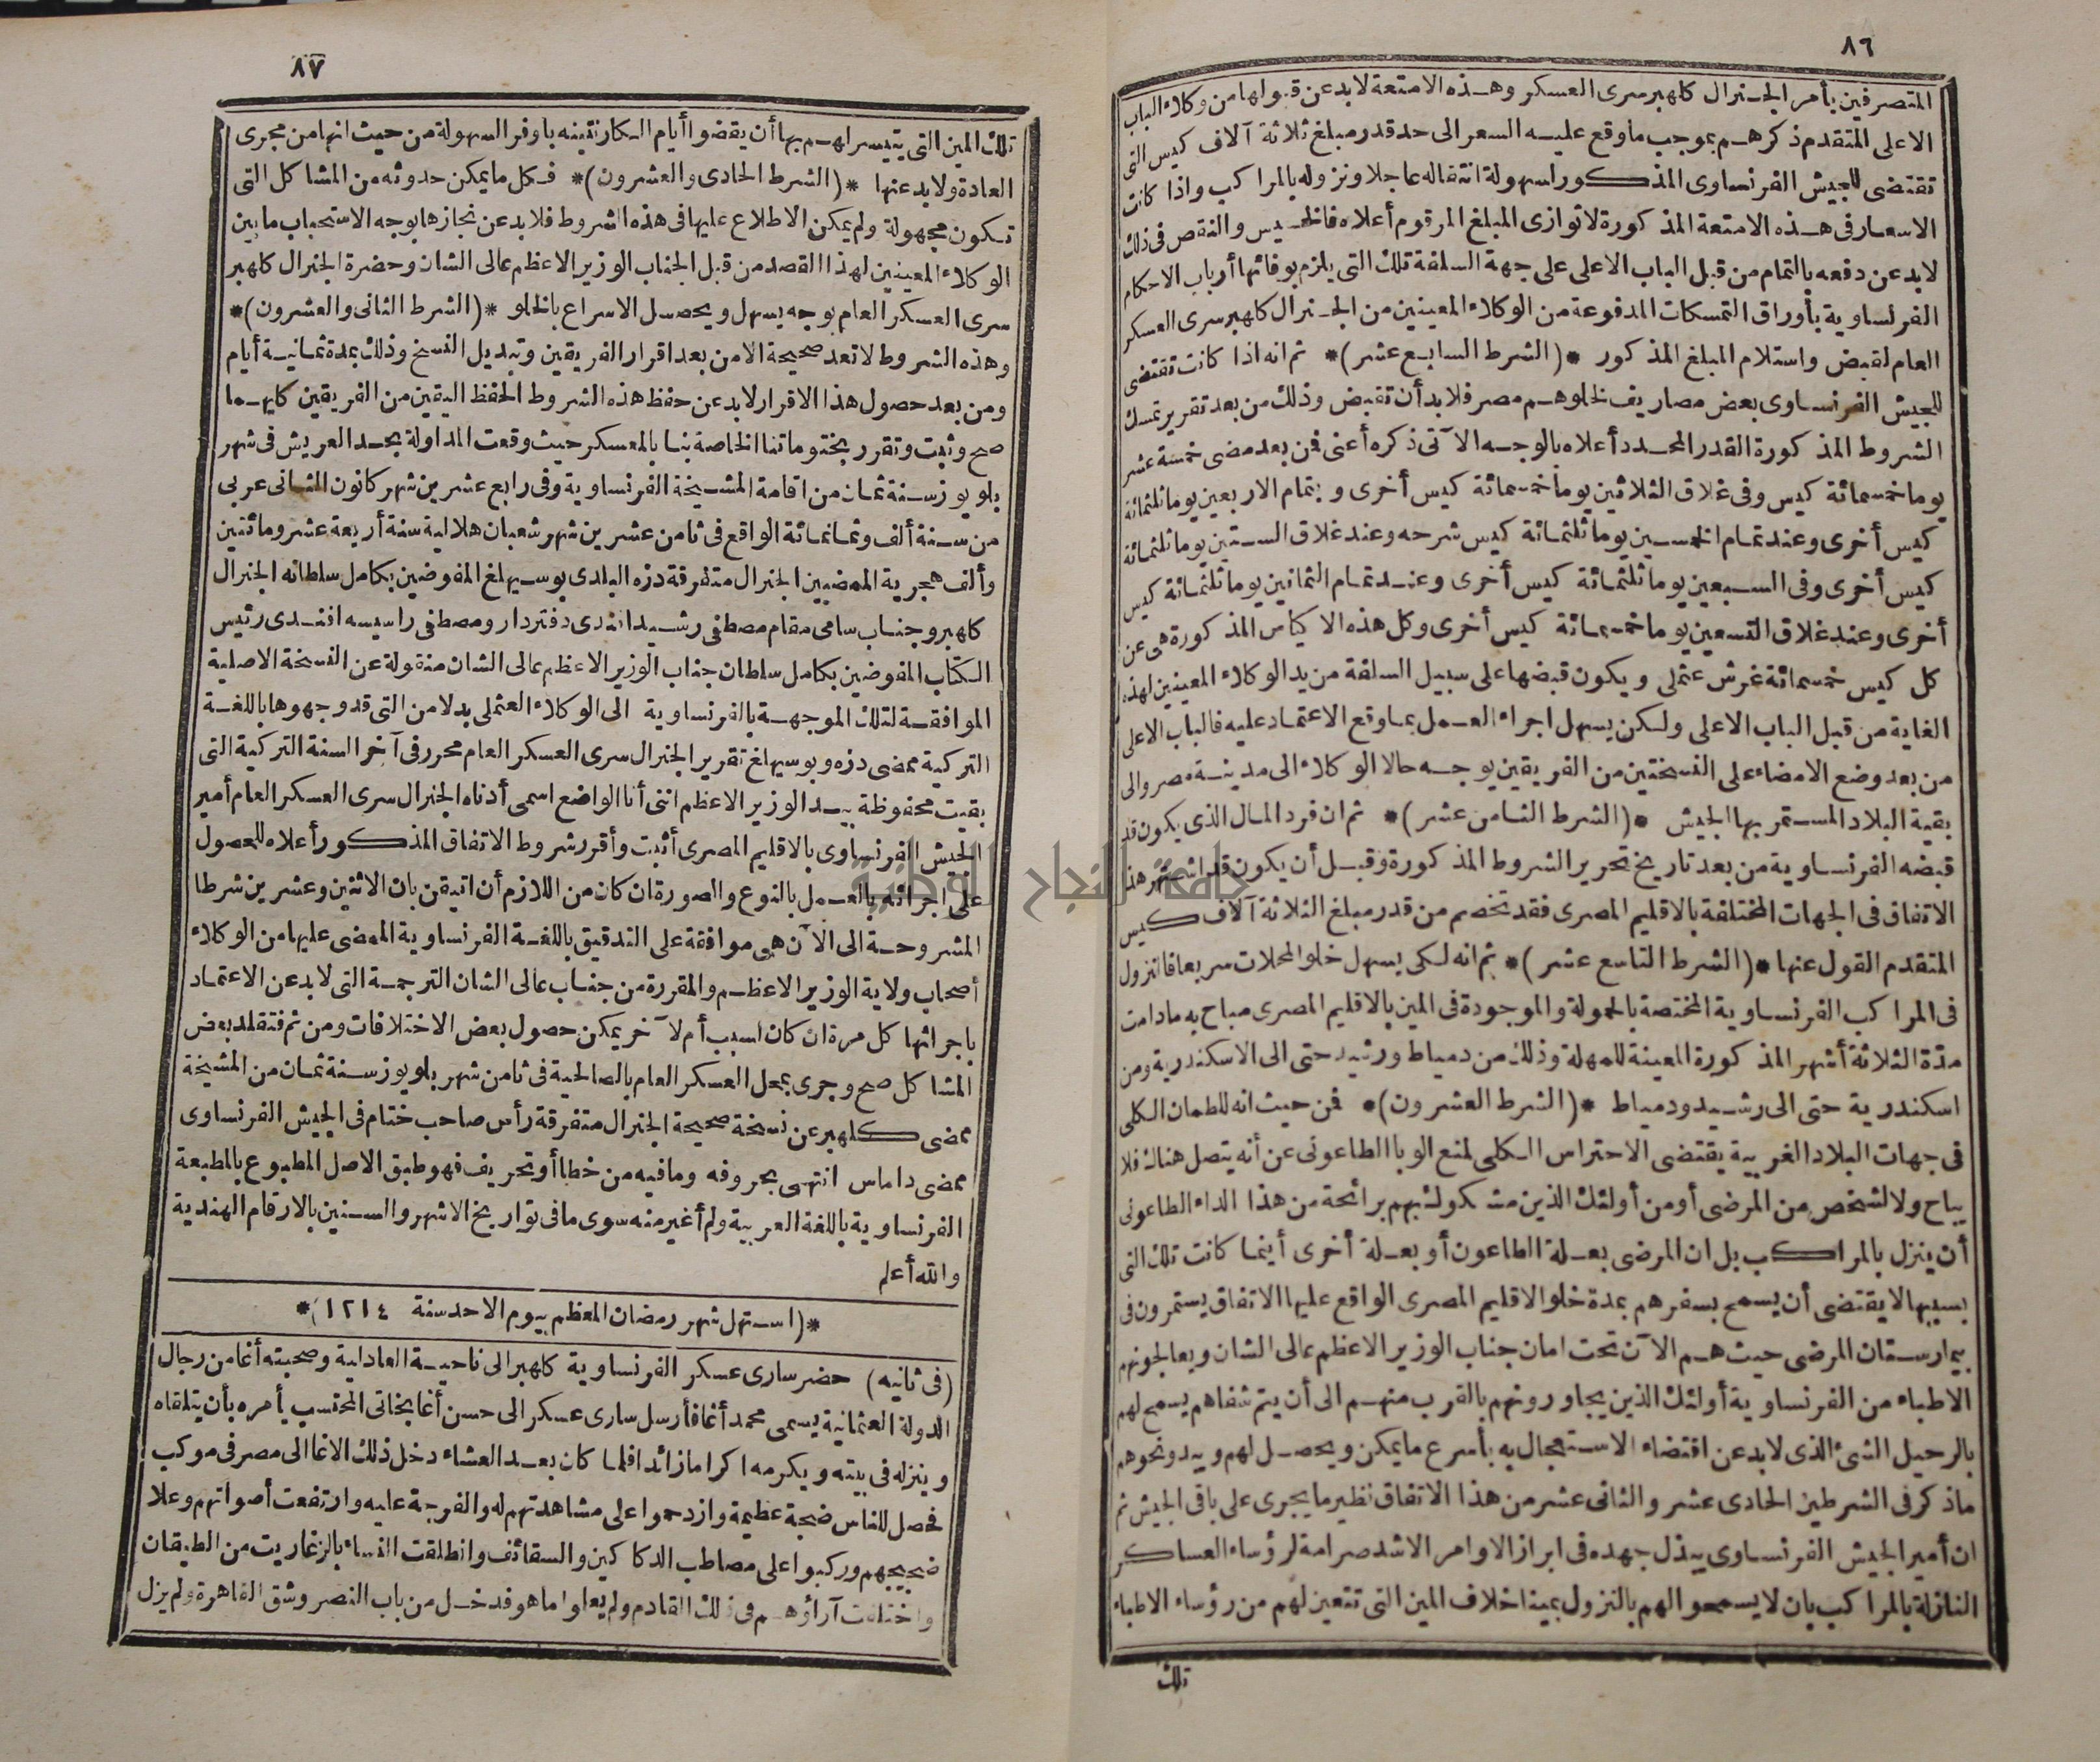 ٨٦
المتصرفين بأمر الجنرال كلهبر سرى العسكر وهذه الامتعة لا بد عن قبولها من وكلاء الباب
الاعلى المتقدم ذكرهم بموجب ما وقع عليه السعر الى حد قدر مبلغ ثلاثة آلاف كيس التى
تقتضى للجيش الفرنساوى المذكور لسهولة انتقاله عاجلا ونزوله بالمراكب واذا كانت
الاسعار فى هذه الامتعة المذكورة لا توازى المبلغ المرقوم أعلاه فالخسيس والنقص فى ذلك
لا بد عن دفعه بالتمام من قبل الباب الاعلى على جهة السلفة تلك التى يلزم بوفائها أرباب الاحكام
الفرنساوية بأوراق التمسكات المدفوعة من الوكلاء المعينين من الجنرال كلهبر سرى العسكر
العام لقبض واستلام المبلغ المذكور *(الشرط السابع عشر)* ثم انه اذا كانت تقتضى
للجيش الفرنساوى بعض مصاريف لخلوهم مصر فلا بد أن تقبض وذلك من بعد تقرير تمسك
الشروط المذكورة القدر المحدد أعلاه بالوجه الآتى ذكره أعنى فمن بعد مضى خمسة عشر
يوما خمسمائة كيس وفى غلاق الثلاثين يوما خمسمائة كيس أخرى وبتمام الاربعين يوما ثلثمائة
كيس أخرى وعند تمام الخمسين يوما ثلثمائة كيس شرحه وعند غلاق الستين يوما ثلثمائة
كيس أخرى وفى السبعين يوما ثلثمائة كيس أخرى وعند تمام الثمانين يوما ثلثمائة كيس
أخرى وعند غلاق التسعين يوما خمسمائة كيس أخرى وكل هذه الاكياس المذكورة هى عن
كل كيس خمسمائة غرش عثملى ويكون قبضها على سبيل السلفة من يد الوكلاء المعينين لهذه
الغاية من قبل الباب الاعلى ولكن يسهل اجراء العمل بما وقع الاعتماد عليه فالباب الاعلى
من بعد وضع الامضاء على النسختين من الفريقين يوجه حالا الوكلاء الى مدينة مصر والى
بقية البلاد المستمر بها الجيش *(الشرط الثامن عشر)* ثم ان فرد المال الذى يكون قد
قبضه الفرنساوية من بعد تاريخ تحرير الشروط المذكورة وقبل أن يكون قد اشتهر هذا
الاتفاق فى الجهات المختلفة بالاقليم المصرى فقد تخصم من قدر مبلغ الثلاثة آلاف كيس
المتقدم القول عنها *(الشرط التاسع عشر)* ثم انه لكى يسهل خلو المحلات سريعا فالنزول
فى المراكب الفرنساوية المختصة بالحمولة والموجودة فى المين بالاقليم المصرى مباح به مادامت
مدّة الثلاثة أشهر المذكورة المعينة للمهلة وذلك من دمياط ورشيد حتى الى الاسكندرية ومن
اسكندرية حتى الى رشيد ودمياط *(الشرط العشرون)* فمن حيث انه للطمان الكلى
فى جهات البلاد الغربية يقتضى الاحتراس الكلى لمنع الوبا الطاعونى عن أنه يتصل هناك فلا
يباح ولا لشخص من المرضى أو من أولئك الذين مشكوك بهم برائحة من هذا الداء الطاعونى
أن ينزل بالمراكب بل ان المرضى بعلة الطاعون أو بعلة أخرى أينما كانت تلك التى
بسببها لا يقتضى أن يسمح بسفرهم بمدة خلو الاقليم المصرى الواقع عليها الاتفاق يستمرون فى
بيمارستان المرضى حيث هم الآن تحت امان جناب الوزير الاعظم عالى الشان ويعالجونهم
الاطباء من الفرنساوية أولئك الذين يجاورونهم بالقرب منهم الى أن يتم شفاهم يسمح لهم
بالرحيل الشئ الذى لا بد عن اقتضاء الاستعجال به بأسرع ما يمكن ويحصل لهم ويبدو نحوهم
ما ذكر فى الشرطين الحادى عشر والثانى عشر من هذا الاتفاق نظير ما يجرى على باقى الجيش ثم
ان أمير الجيش الفرنساوى يبذل جهده فى ابراز الاوامر الاشد صرامة لرؤساء العساكر
النازلة بالمراكب بان لا يسمحوا لهم بالنزول بمينا خلاف المين التى تتعين لهم من رؤساء الاطباء
تلك
٨٧
تلك المين التى يتيسر لهم بها أن يقضوا أيام الكارنتينه باوفر السهولة من حيث انها من مجرى
العادة ولا بد عنها *(الشرط الحادى والعشرون)* فكل ما يمكن حدوثه من المشاكل التى
تكون مجهولة ولم يمكن الاطلاع عليها فى هذه الشروط فلا بد عن نجازها بوجه الاستحباب ما بين
الوكلاء المعينين لهذا القصد من قبل الجناب الوزير الاعظم عالى الشان وحضرة الجنرال كلهبر
سرى العسكر العام بوجه يسهل ويحصل الاسراع بالخلو *(الشرط الثانى والعشرون)*
وهذه الشروط لا تعد صحيحة الا من بعد اقرار الفريقين وتبديل النسخ وذلك بمدة ثمانية أيام
ومن بعد حصول هذا الاقرار لا بد عن حفظ هذه الشروط الحفظ اليقين من الفريقين كليهما
صح وثبت وتقرر بختوماتنا الخاصة بنا بالمعسكر حيث وقعت المداولة بحد العريش فى شهر
بلويوز سنة ثمان من اقامة المشيخة الفرنساوية وفى رابع عشرين شهر كانون الثانى عربى
من سنة ألف وثمانمائة الواقع فى ثامن عشرين شهر شعبان هلالية سنة أربعة عشر ومائتين
وألف هجرية الممضيين الجنرال متفرقة دزه البلدى بوسيهلغ المفوضين بكامل سلطانه الجنرال
كلهبر وجناب سامى مقام مصطفى رشيد افندى دفتردار ومصطفى راسيسه افندى رئيس
الكتاب المفوضين بكامل سلطان جناب الوزير الاعظم عالى الشان منقولة عن النسخة الاصلية
الموافقة لتلك الموجهة بالفرنساوية الى الوكلاء العثملى بدلا من التى قد وجهوها باللغة
التركية ممضى دزه وبوسيهلغ تقرير الجنرال سرى العسكر العام محرر فى آخر السنة التركية التى
بقيت محفوظة بيد الوزير الاعظم اننى أنا الواضع اسمى أدناه الجنرال سرى العسكر العام أمير
الجيش الفرنساوى بالاقليم المصرى أثبت وأقرر شروط الاتفاق المذكور أعلاه للحصول
على اجرائه بالعمل بالنوع والصورة ان كان من اللازم أن اتيقن بان الاثنين وعشرين شرطا
المشروحة الى الآن هى موافقة على التدقيق باللغة الفرنساوية الممضى عليها من الوكلاء
أصحاب ولاية الوزير الاعظم والمقررة من جناب عالى الشان الترجمة التى لا بد عن الاعتماد
باجرائها كل مرة ان كان لسبب أم لآخر يمكن حصول بعض الاختلافات ومن ثم فتقلد بعض
المشاكل صح وجرى بمحل العسكر العام بالصالحية فى ثامن شهر بلويوز سنة ثمان من المشيخة
ممضى كلهبر عن نسخة صحيحة الجنرال متفرقة رأس صاحب ختام فى الجيش الفرنساوى
ممضى داماس انتهى بحروفه وما فيه من خطا أو تحريف فهو طبق الاصل المطبوع بالمطبعة
الفرنساوية باللغة العربية ولم أغير منه سوى ما فى تواريخ الاشهر والسنين بالارقام الهندية
والله أعلم
*(استهل شهر رمضان المعظم بيوم الاحد سنة ١٢١٤)*
(فى ثانيه) حضر سارى عسكر الفرنساوية كلهبر الى ناحية العادلية وصحبته أغا من رجال
الدولة العثمانية يسمى محمد أغا فأرسل سارى عسكر الى حسن أغا نجاتى المحتسب يأمره بأن يتلقاه
وينزله فى بيته ويكرمه اكراما زائدا فلما كان بعد العشاء دخل ذلك الاغا الى مصر فى موكب
فحصل للناس ضجة عظيمة وازدحموا على مشاهدتهم له والفرجة عليه وارتفعت أصواتهم وعلا
ضجيجهم وركبوا على مصاطب الدكاكين والسقائف وانطلقت النساء بالزغاريت من الطيقان
واختلفت آراؤهم فى ذلك القادم ولم يعلموا ما هو فدخل من باب النصر وشق القاهرة ولم يزل
جامعة النجاح الوطنية